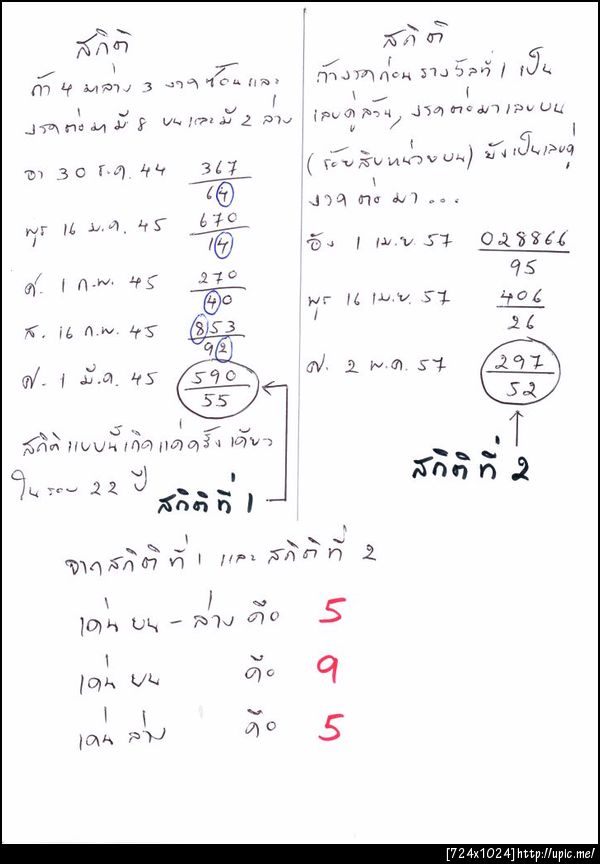 สถิติ
ถ้า 4 มาล่าง 3 งวดซ้อนและ
งวดต่อมามี 8 บนและมี 2 ล่าง
อา 30 ธ.ค. 44 367
64
พุธ 16 ม.ค. 45 670
14
ศ. 1 ก.พ. 45 270
40
ส. 16 ก.พ. 45 853
92
ศ. 1 มี.ค. 45 590
55
สถิติแบบนี้เกิดแค่ครั้งเดียว
ในรอบ 22 ปี
สถิติที่ 1
สถิติ
ถ้างวดก่อนรางวัลที่ 1 เป็น
เลขคู่ล้วน, งวดต่อมาเลขบน
(ร้อยสิบหน่วยบน) ยังเป็นเลขคู่
งวดต่อมา...
อัง 1 เม.ย. 57 028866
95
พุธ 16 เม.ย. 57 406
26
ศ. 2 พ.ค. 57 297
52
สถิติที่ 2
จากสถิติที่ 1 และสถิติที่ 2
เด่นบน - ล่าง คือ 5
เด่นบน คือ 9
เด่นล่าง คือ 5
[724x1024]http://upic.me/